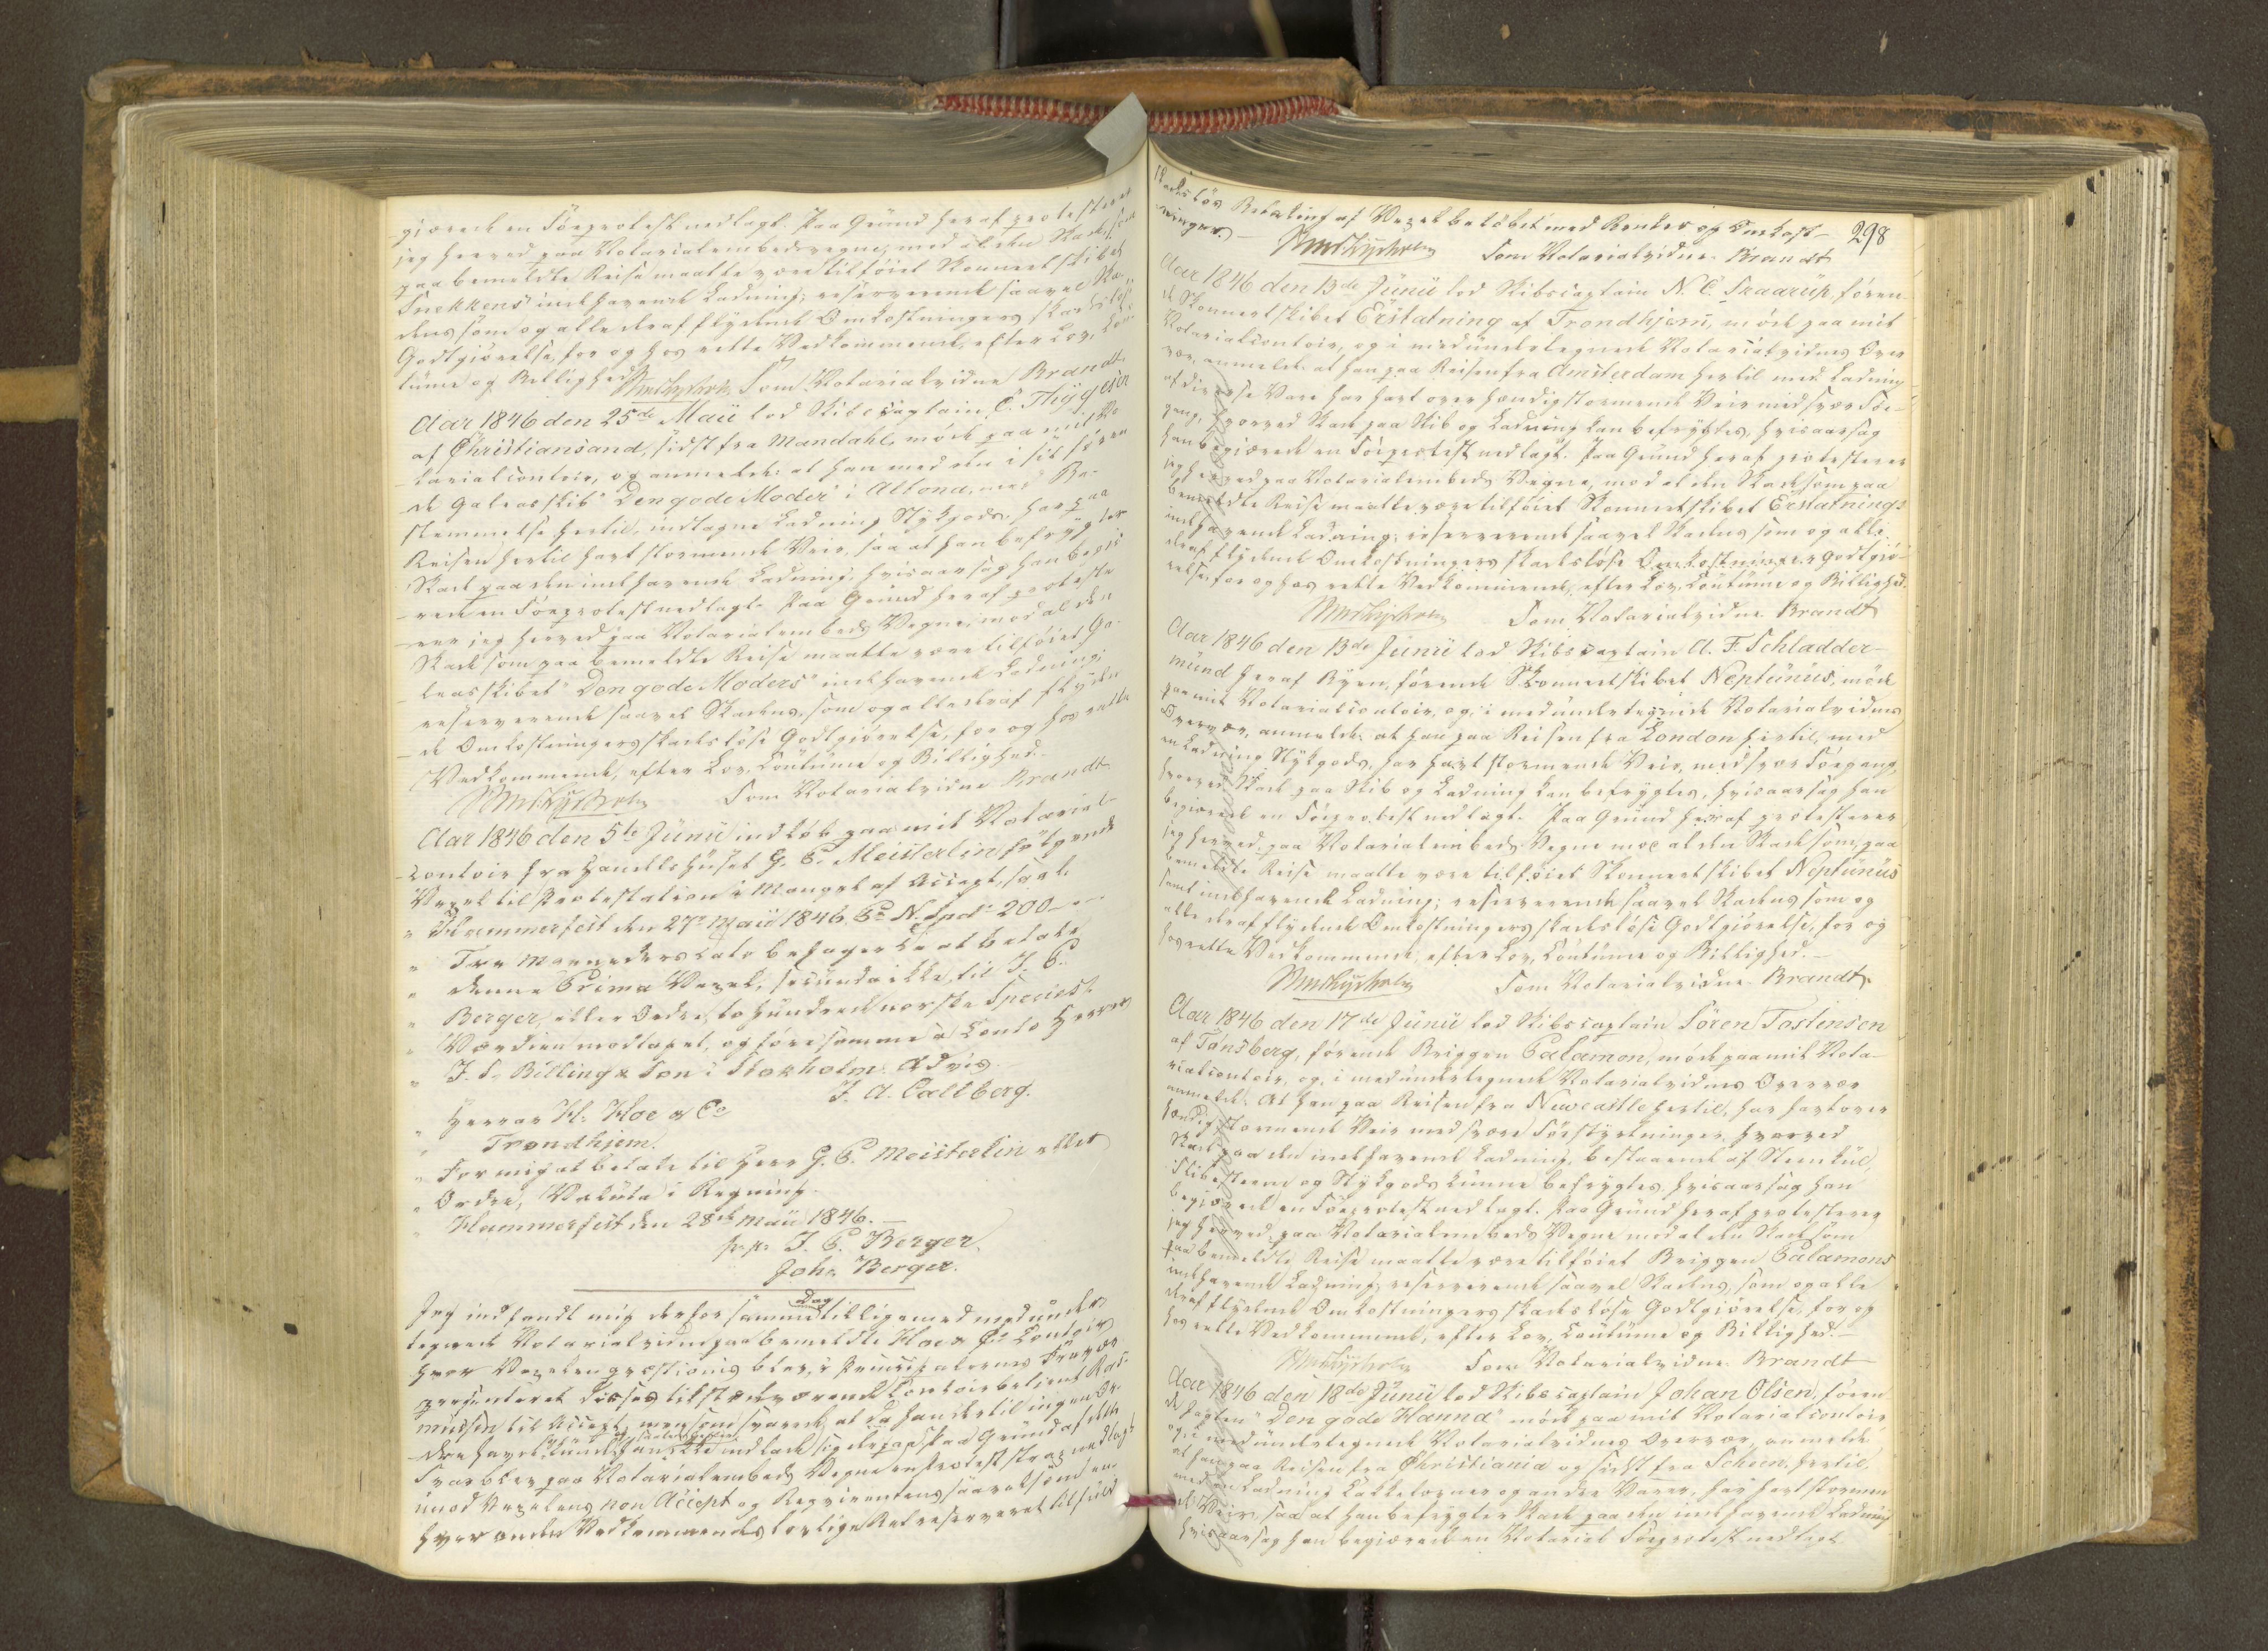 giærede en Söeprotest nedlagt. Paa Grund heraf protesterer
jeg herved paa Notarialembedsvegne, mod al den Skade, som
paa bemeldte Reise maatte være tilföiet Skonnertskibet
Snekkens indehavende Ladning; reserverende saavel Ska-
dens som og alle deraf flydende Omkostningers skadeslöse
Godtgiörelse, for og hos rette Vedkommende, efter Lov, Cou-
tume og Billighed.
Som Notarialvidne Brandt
Aar 1846 den 25de Maii lod Skibscaptain C. Thygesen
af Christiansand, sidst fra Mandahl, möde paa mit No-
tarialcontoir, og anmelde: at han med den i sit fören-
de Galeasskib "Den gode Moder" i Altona, med Be-
stemmelse hertil, indtagne Ladning Stykgods, har paa
Reisen hertil havt stormende Veir, saa at han befrygter
Skade paa den indehavende Ladning, hvisaarsag han begiæ-
rede en Söeprotest nedlagt. Paa Grund heraf proteste-
rer jeg herved paa Notarialembeds Vegne, mod al den
Skade som paa bemeldte Reise maatte være tilföiet Ga-
leasskibet "Den gode Moders" indehavende Ladning;
reserverende saavel Skadens, som og alle deraf flyden-
de Omkostningers skadeslöse Godtgiörelse, for og hos rette
Vedkommende, efter Lov, Coutume og Billighed.
Som Notarialvidne Brandt
Aar 1846 den 5te Junii indlöb paa mit Notarial-
contoir fra Handelshuset G. C. Meisterlin fölgende
Vexel til Protestation i Mangel af Accept, saal.
" Hammerfest den 27de Maii 1846. Pr N. Spd. 200
" Tre Maaneders Dato behager De at betale
" denne Prima Vexel, secunda ikke, til J. C.
" Berger, eller Ordre, to hundrede norske Species.
" Værdien modtaget, og före samme a Conto Herrer
" J. S. Billing & Son i Stokholm. Advis
J. A. Carlberg.
" Herrer H. Hoe & Co
" Trondhjem.
" For mig at betale til Herr G. C. Meisterlin eller
" Ordre, Valuta i Regning.
" Hammerfest den 28de Maii 1846.
pr. pr. J. C. Berger.
Joh. Berger.
Jeg indfandt mig derfor samme Dag tilligemed medunder-
tegnede Notarialvidne paa bemeldte Hoe & Co Contoir
hvor Vexelen qvæstionis blev, i Principalernes Fravær
præsenteret disses tilstædeværende Contoirbetient Ras-
mussen til Accept, men som svarede, at da han dertil ingen Or-
dre havde, kunde han ikke indlade sig derpaa. Paa Grund af dette
Svar blev paa Notarialembeds Vegne en Protest strax nedlagt
imod Vexelens non Accept og Reqvirentens saavel som en-
hver anden Vedkommendes lovlige Ret reserveret til fuld
skadeslös Betaling af Vexelbelöbet med Renter og Omkost-
ninger.
298
Som Notarialvidne Brandt
Aar 1846 den 13de Junii lod Skibscaptain N. C. Traarup, fören-
de Skonnertskibet Erstatning af Trondhjem, möde paa mit
Notarialcontoir, og i medundertegnede Notarialvidnes Over-
vær, anmelde: at han paa Reisen fra Amsterdam hertil med Ladning
af diverse Vare har havt overhændig stormende Veir med svær Söe-
gang, hvorved Skade paa Skib og Ladning kan befrygtes, hvisaarsag
han begiærede en Söeprotest nedlagt. Paa Grund heraf protesterer
jeg herved paa Notarialembeds Vegne, mod al den Skade som paa
bemeldte Reise maatte være tilföiet Skonnertskibet Erstatnings
indehavende Ladning; reserverende saavel Skadens som og alle
deraf flydende Omkostningers skadeslöse Omkostninger Godtgiö-
relse, for og hos rette Vedkommende, efter Lov, Coutume og Billighed.
Som Notarialvidne Brandt
Aar 1846 den 13de Junii lod Skibscaptain A. F. Schladder-
mund her af Byen, förende Skonnertskibet Neptunus, möde
paa mit Notarialcontoir, og i medundertegnede Notarialvidnes
Overvær, anmelde: at han paa Reisen fra London hertil, med
en Ladning Stykgods, har havt stormende Veir, med svær Söegang,
hvorved Skade paa Skib og Ladning kan befrygtes, hvisaarsag han
begiærede en Söeprotest nedlagt. Paa Grund heraf protesterer
jeg herved paa Notarialembeds Vegne mod al den Skade som paa
bemeldte Reise maatte være tilföiet Skonnertskibet Neptunus
samt indehavende Ladning; reserverende saavel Skadens som og
alle deraf flydende Omkostningers skadeslöse Godtgiörelse, for og
hos rette Vedkommende, efter Lov, Coutume og Billighed.
Som Notarialvidne Brandt
Aar 1846 den 17de Junii lod Skibscaptain Sören Tostensen
af Tönsberg, förende Briggen Palamon, möde paa mit Nota-
rialcontoir, og i medundertegnede Notarialvidnes Overvær
anmelde: At han paa Reisen fra Newcastle hertil, har havt over-
hændig stormende Veir med svære Söestyrtninger, hvorved
Skade paa den indehavende Ladning, bestaaende af Steenkul,
Slibesteene og Stykgods kunne befrygtes, hvisaarsag han
begiærede en Söeprotest nedlagt. Paa Grund heraf protesterer
jeg herved, paa Notarialembeds Vegne mod al den Skade som
paa bemeldte Reise maatte være tilföiet Briggen Palamons
indehavende Ladning; reserverende saavel Skadens, som og alle
deraf flydende Omkostningers skadeslöse Godtgiörelse, for og
hos rette Vedkommende, efter Lov, Coutume og Billighed.
Som Notarialvidne Brandt
Aar 1846 den 18de Junii lod Skibscaptain Johan Olsen, fören-
de Jagten "Den gode Hanna" möde paa mit Notarialcontoir
og i medundertegnede Notarialvidnes Overvær, anmelde
at han paa Reisen fra Christiania og sidst fra Scheen hertil,
med en Ladning Kakkelovner og andre Varer, har havt stormen-
de Veir, saa at han befrygter Skade paa den indehavende Ladning
hvisaarsag han begiærede en Notarial Söeprotest nedlagt